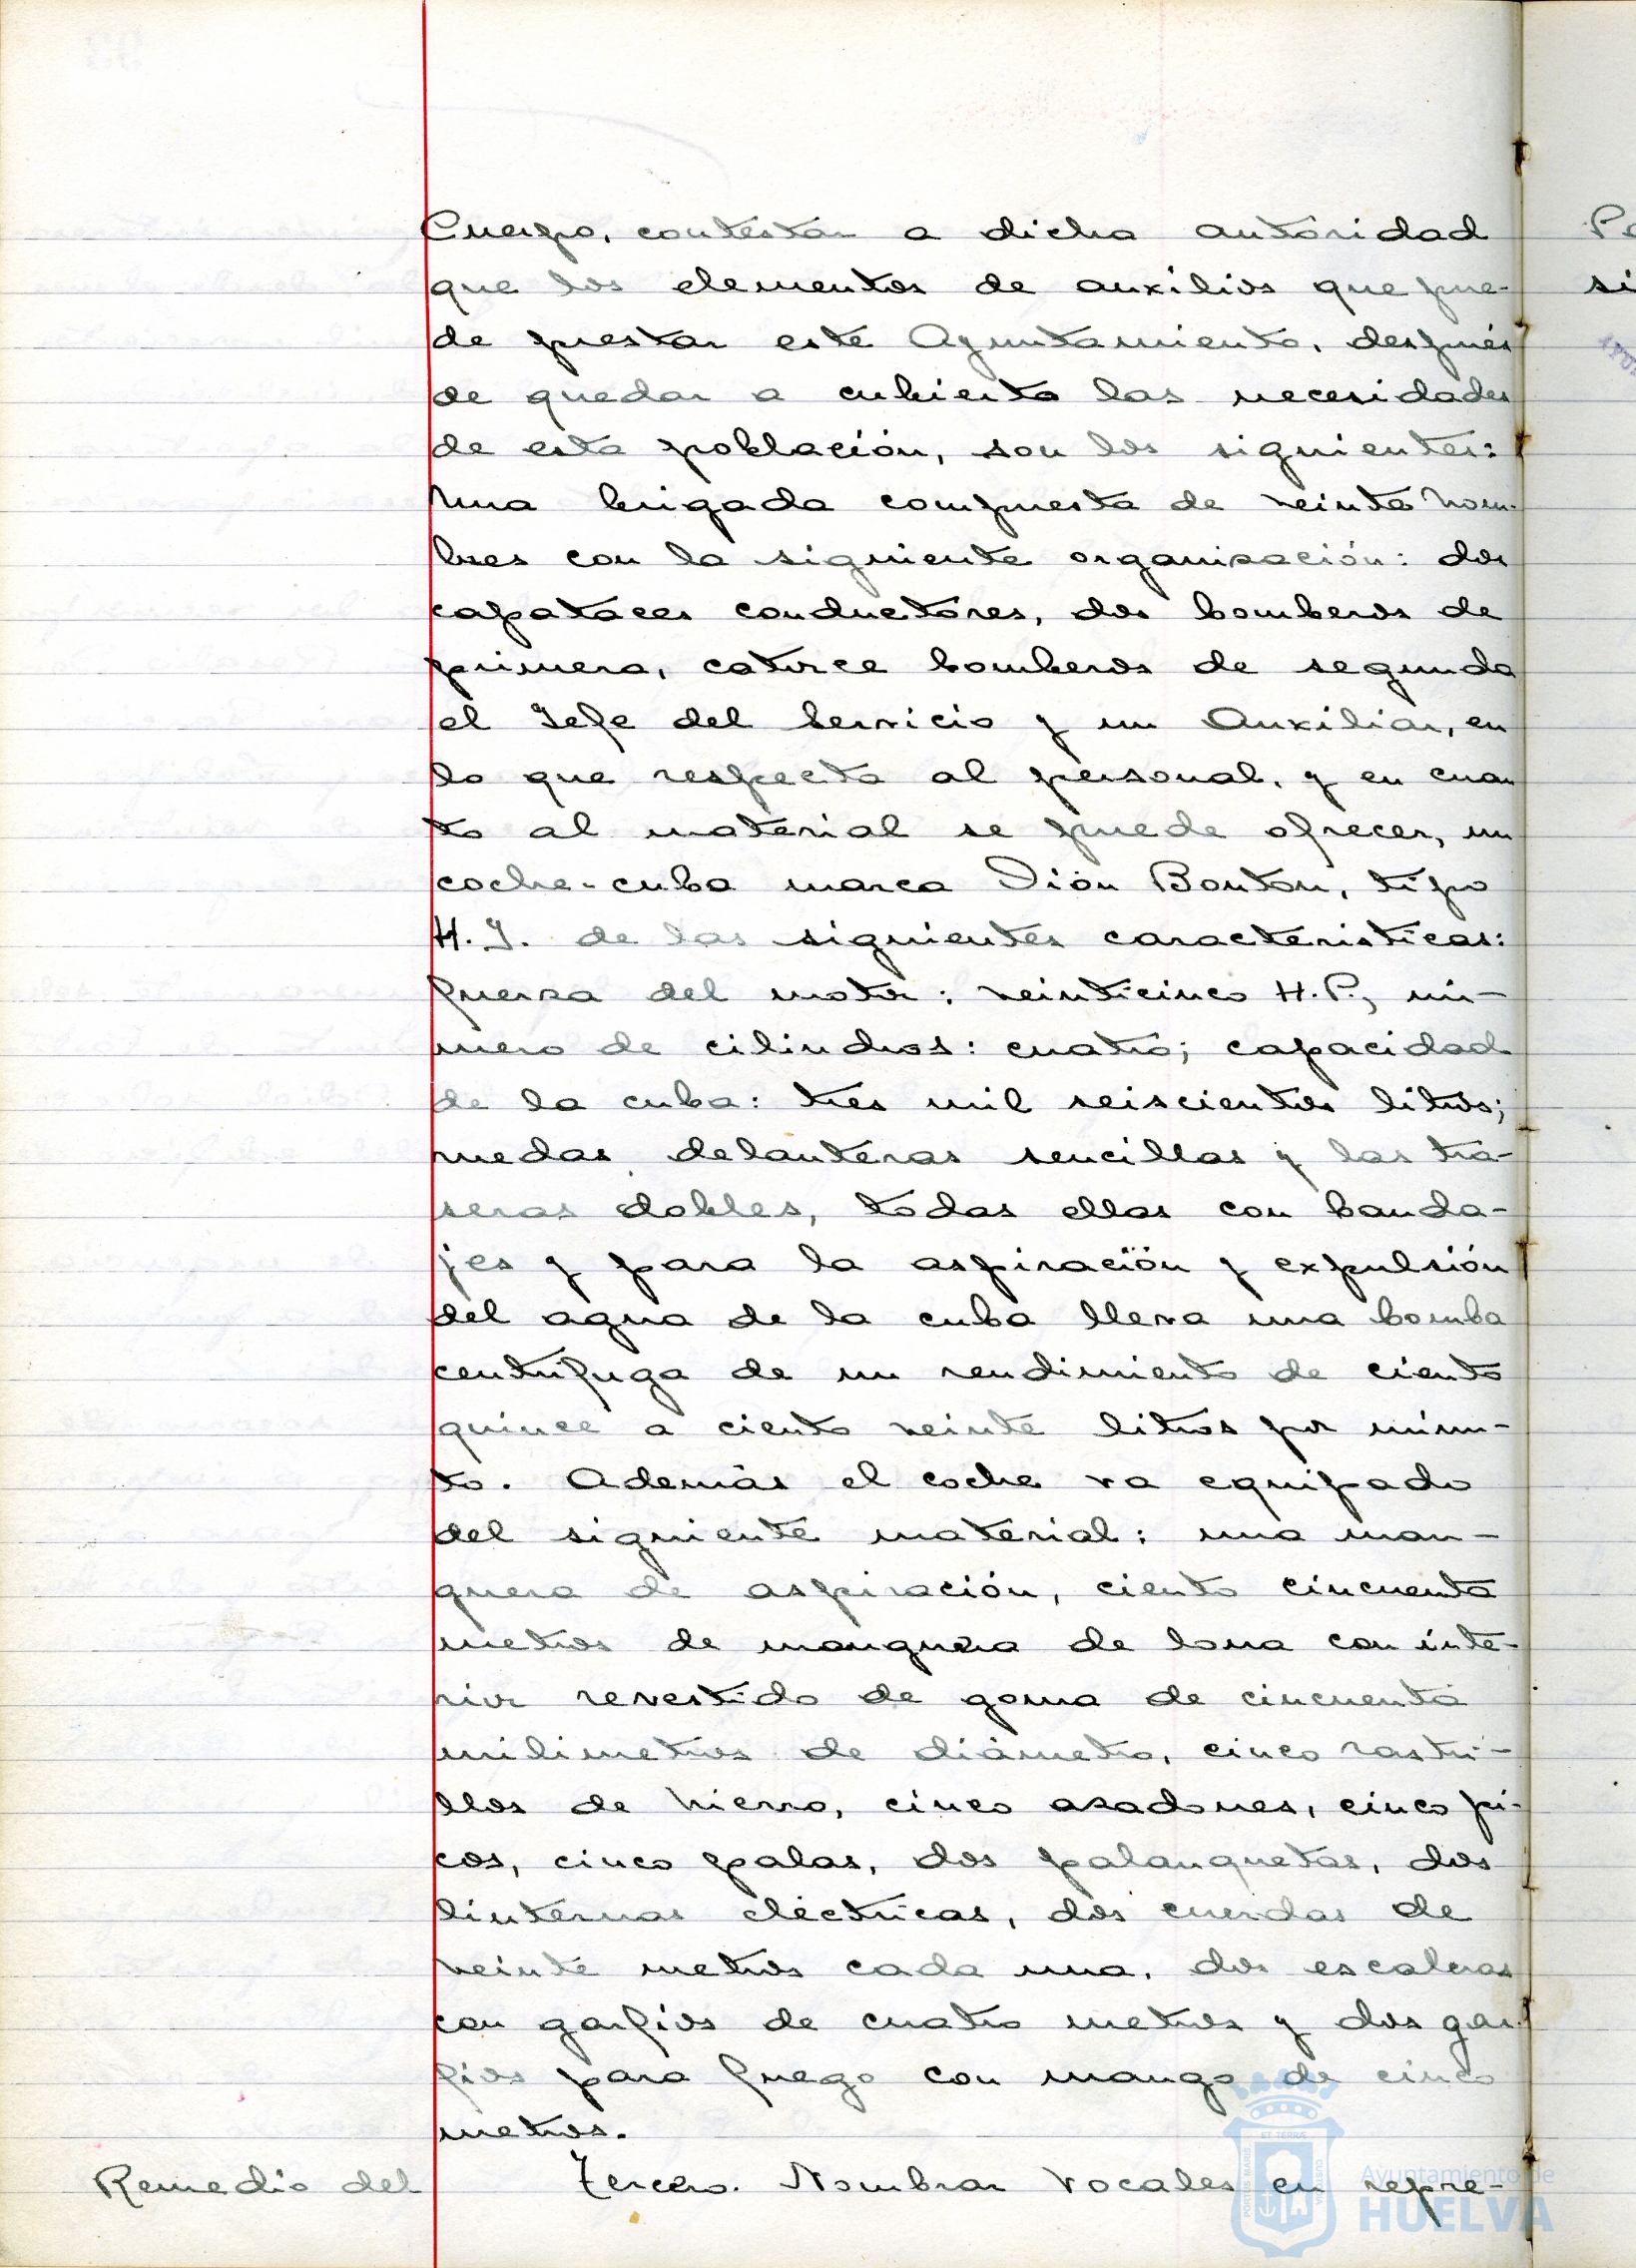 Cuerpo, contestar a dicha autoridad
que los elementos de auxilios que pue-
de prestar este Ayuntamiento, después
de quedar a cubierto las necesidades
de esta población, son los siguientes:
una brigada compuesta de veinte hom-
bres con la siguiente organización: dos
capataces conductores, dos bomberos de
primera, catorce bomberos de segunda
el Jefe del Servicio y un Auxiliar, en
lo que respecta al personal, y en cuan
to al material se puede ofrecer, un
coche-cuba marca Dión Bouton, tipo
H.J. de las siguientes características:
fuerza del motor: veinticinco H.P., nú-
mero de cilindros: cuatro; capacidad
de la cuba: tres mil seiscientos litros;
ruedas delanteras sencillas y las tra-
seras dobles, todas ellas con banda-
jes y para la aspiración y expulsión
del agua de la cuba lleva una bomba
centrífuga de un rendimiento de ciento
quince a ciento veinte litros por minu-
to. Además el coche va equipado
del siguiente material: una man-
guera de aspiración, ciento cincuenta
metros de manguera de lona con inte-
rior revestido de goma de cincuenta
milimetros de diámetro, cinco rastri-
llos de hierro, cinco azadones, cinco pi-
cos, cinco palas, dos palanquetas, dos
linternas eléctricas, dos cuerdas de
veinte metros cada una, dos escaleras
con garfios de cuatro metros y dos gar-
fios para fuego con mango de cinco
metros.
Remedio del Tercero. Nombrar Vocales en repre-
Ayuntamiento de
HUELVA